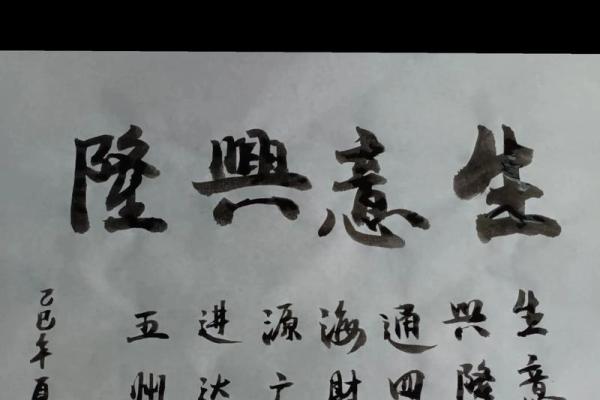 生意興隆
生意
兴隆
通四
海財
源广
进达
五州
乙巳年夏